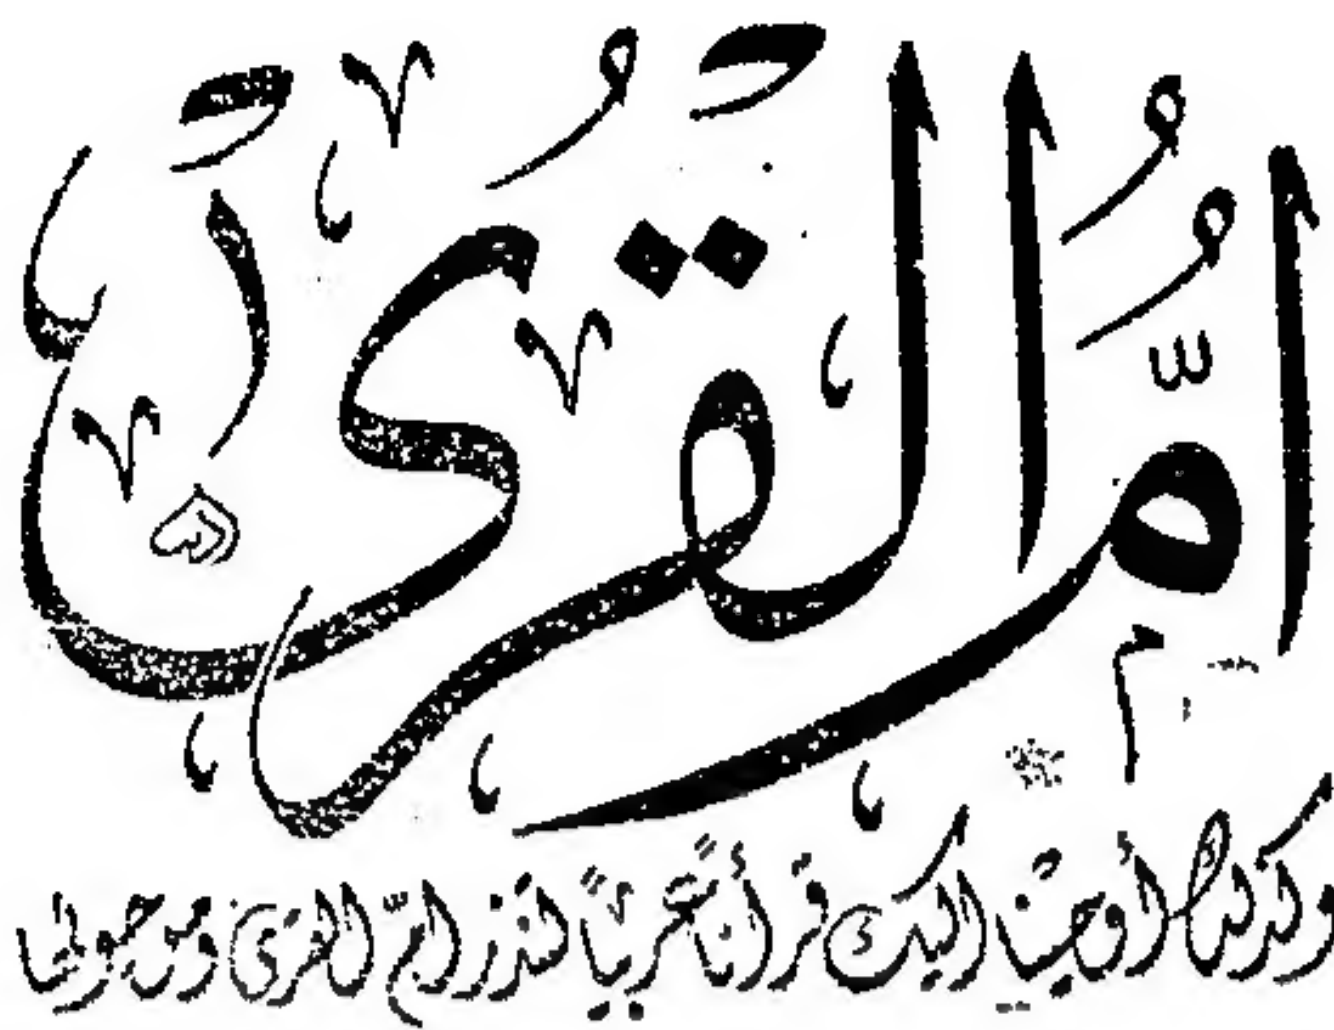 أُمُّ الْقُرَى
وكذلك أوحينا اليك قرأناً عربياً لتنذر امّ القرى ومن حولها